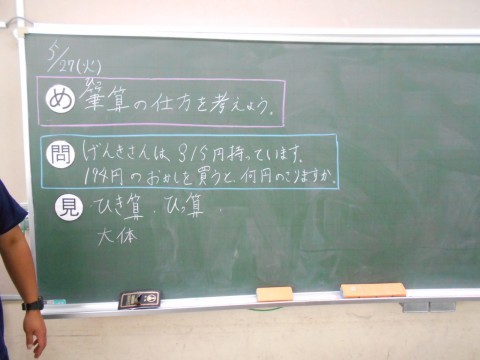 5/27(火)
め 筆算の仕方を考えよう。
ひっ
問 げんきさんは、315円持っています。
174円のおかしを買うと、何円のこりますか。
見 ひき算、ひっ算、
大体